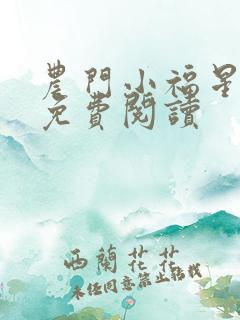 農門小福星
免費閱讀
西蘭花花
未经同意禁止转载